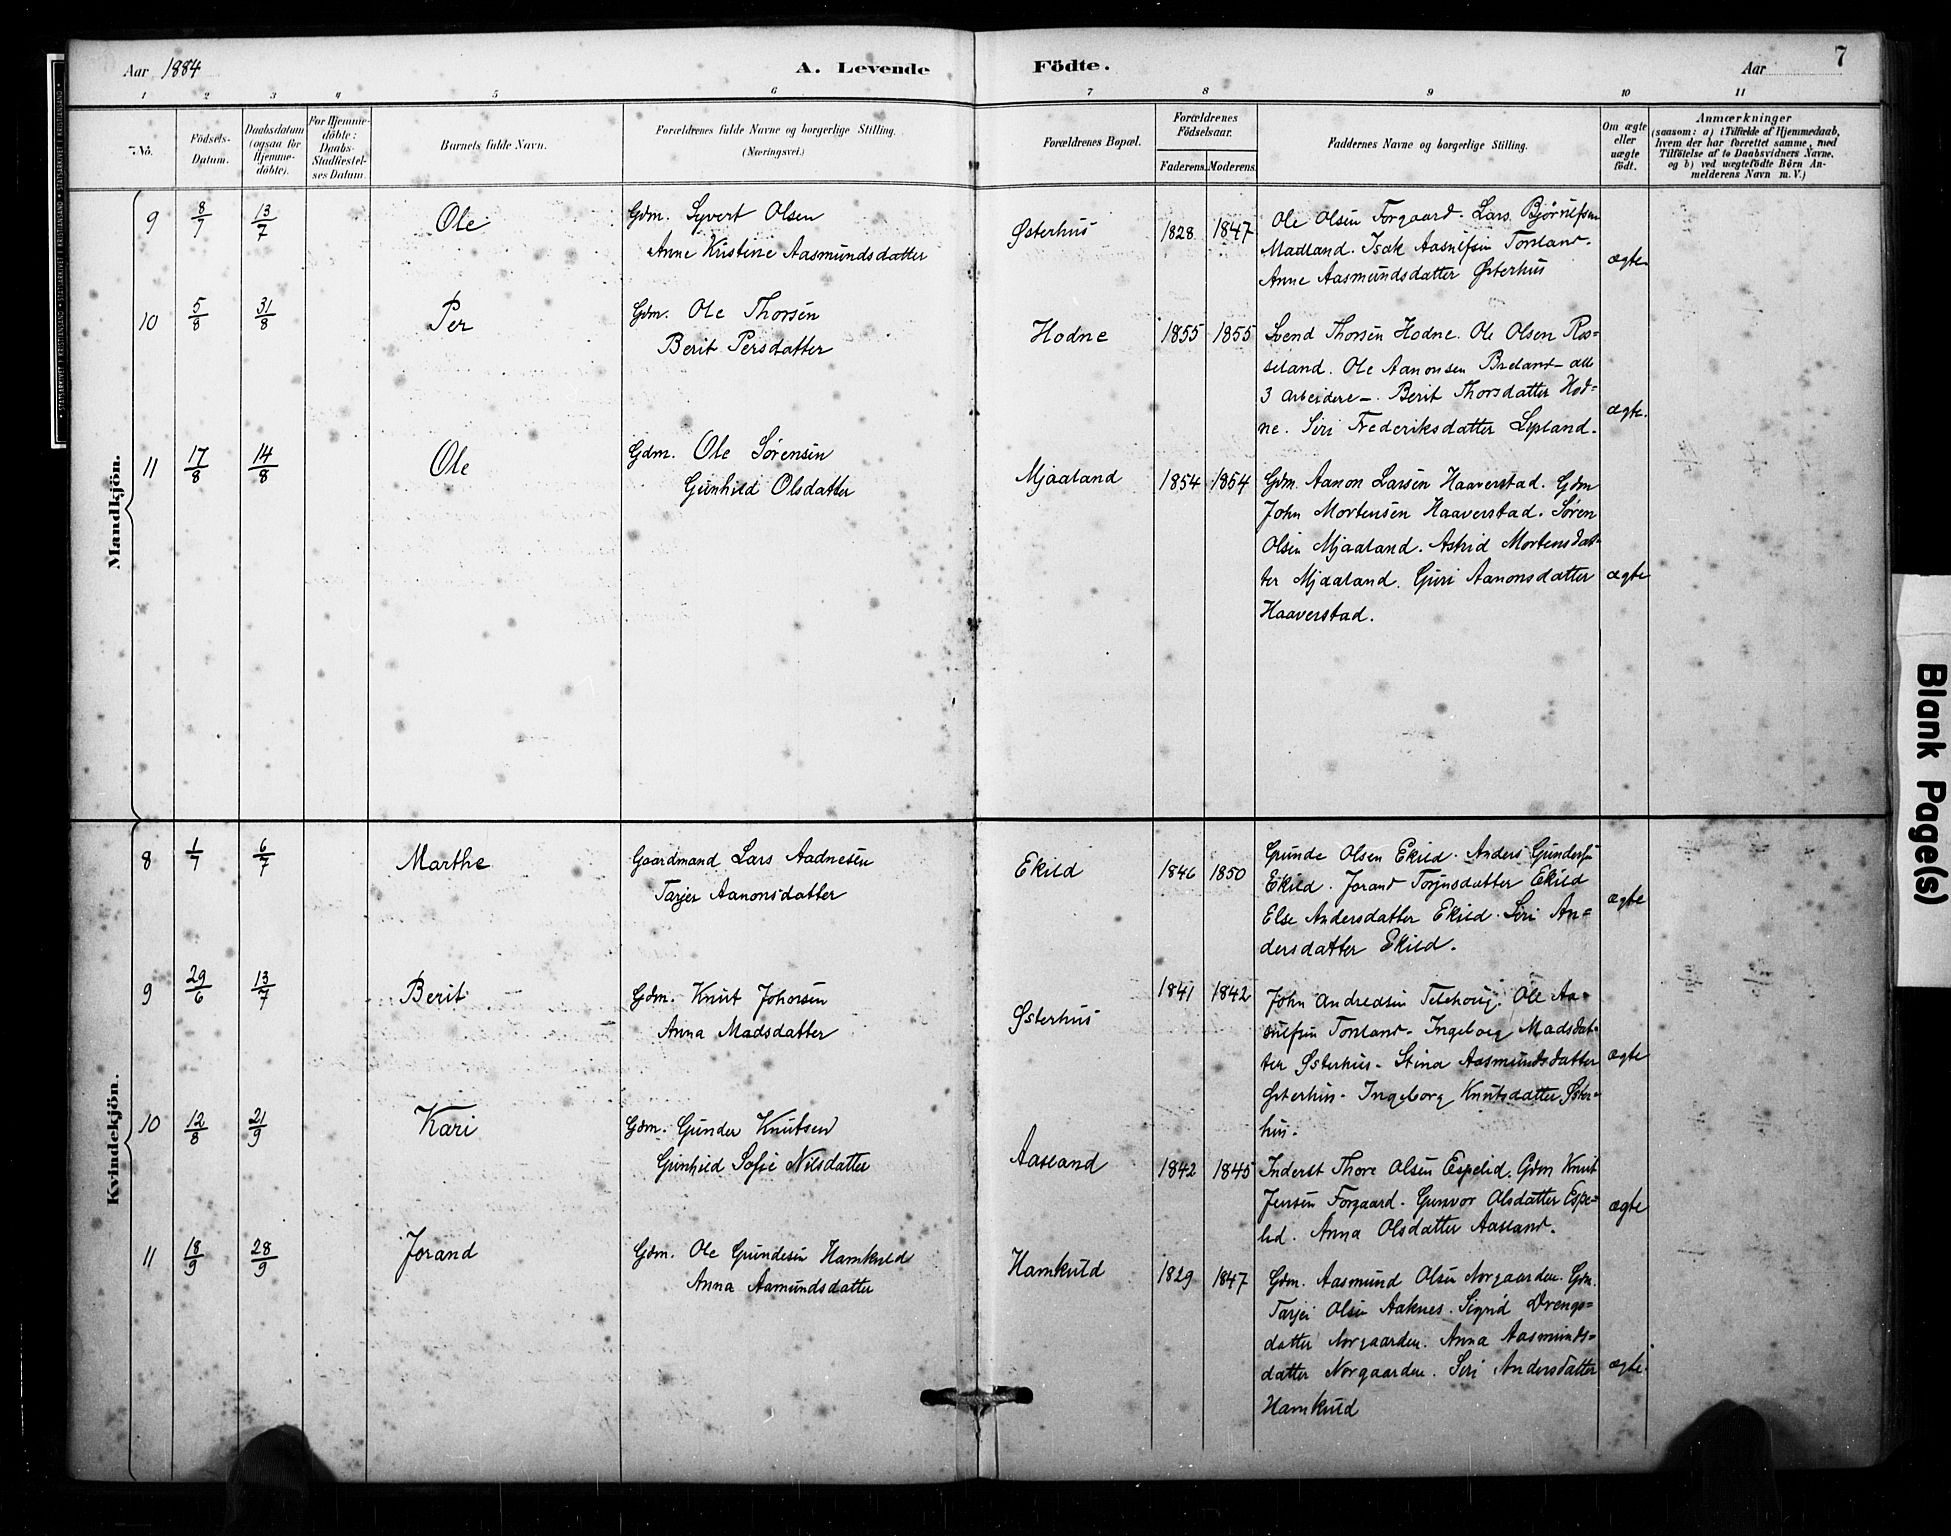 Aar 1884
A. Levende
Födte.
Aar
7
1 2 3 4 5 6 7 8 9 10 11
No.
Födsels-
Datum.
Daabsdatum
(ogsaa for
Hjemme-
döbte).
For Hjemme-
döbte:
Daabs-
Stadfæstel-
ses Datum.
Barnets fulde Navn.
Forældrenes fulde Navne og borgerlige Stilling.
(Næringsvei.)
Forældrenes Bopæl.
Forældrenes
Födselsaar.
Faderens. Moderens.
Faddernes Navne og borgerlige Stilling.
Om ægte
eller
uægte
födt.
Anmærkninger
(saasom: a) i Tilfælde af Hjemmedaab,
hvem der har forrettet samme, med
Tilföielse af to Daabsvidners Navne,
og b) ved uægtefödte Börn An-
melderens Navn m. V.)
Mandkjön.
9 8/7 13/7 Ole
Gdm. Syvert Olsen
Anne Kristine Aasmundsdatter
Østerhus 1828 1847
Ole Olsen Forgaard. Lars Bjørulfsen
Madland. Isak Aasulfsen Torsland.
Anne Aasmundsdatter Østerhus
ægte
10 5/8 31/8 Per
Gdm. Ole Thorsen
Berit Persdatter
Hodne 1855 1855
Svend Thorsen Hodne. Ole Olsen Ros=
seland. Ole Aanonsen Breland - alle
3 arbeidere -. Berit Thorsdatter Hod=
ne. Siri Frederiksdatter Lepland.
ægte.
11 17/8 14/8 Ole
Gdm. Ole Sørensen
Gunhild Olsdatter
Mjaaland 1854 1854
Gdm. Aanon Larsen Haaverstad. Gdm
John Mortensen Haaverstad. Søren
Olsen Mjaaland. Astrid Mortensdat-
ter Mjaaland. Guri Aanonsdatter
Haaverstad.
ægte
Kvindekjön.
8 1/7 6/7 Marthe
Gaardmand Lars Aadnesen
Tarjer Aanonsdatter
Ekild 1846 1850
Grunde Olsen Ekild. Anders Gundersen
Ekild. Jorand Torjusdatter Ekild
Else Andersdatter Ekild. Siri An=
dersdatter Ekild.
ægte
9 29/6 13/7 Berit
Gdm. Knut Johnsen
Anna Madsdatter
Østerhus 1841 1842
John Andreasen Telehoug. Ole Aa-
sulfsen Torsland. Ingeborg Madsdat-
ter Østerhus. Stina Aasmundsdatter
Østerhus. Ingeborg Knutsdatter Øster-
hus.
ægte
10 12/8 21/9 Kari
Gdm. Gunder Knutsen
Gunhild Sofie Nilsdatter
Aasland 1842 1845
Inderst Thore Olsen Espelid. Gdm Knut
Jensen Forgaard. Gunvor Olsdatter Espe=
lid. Anna Olsdatter Aasland.
ægte
11 18/9 28/9 Jorand
Gdm. Ole Grundesen Hamkuld
Anna Aamundsdatter
Hamkuld 1829 1847
Gdm. Aasmund Olsen Norgaarden. Gdm.
Tarjei Olsen Aaknes. Sigrid Drengs=
datter Norgaarden. Anna Aasmunds=
datter Norgaarden. Siri Andersdatter
Hamkuld
ægte.
STATSARKIVET I KRISTIANSAND
Blank Page(s)